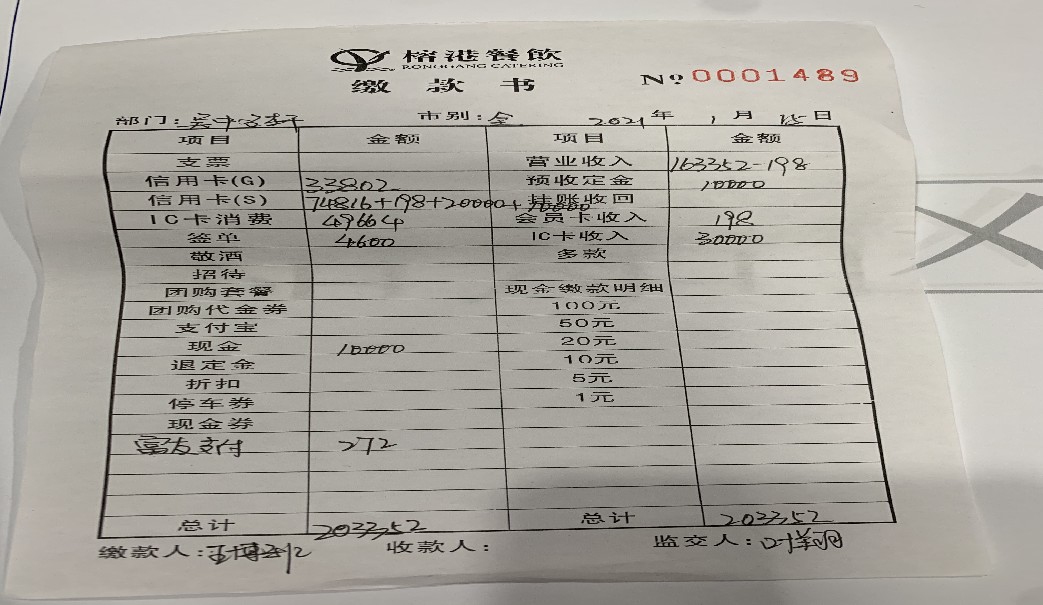 榕港餐飲
RONGGANG CATERING
缴款书
Nº 0001489
部门: 市别:全 2021年1月15日
项目 金额 项目 金额
支票 营业收入 163352-198
信用卡(G) 33802 预收定金 10000
信用卡(S) 74816+198+20000+10000 挂账收回
IC卡消费 49664 会员卡收入 198
签单 4600 IC卡收入 30000
敬酒 多款
招待
团购套餐 现金缴款明细
团购代金券 100元
支付宝 50元
现金 10000 20元
退定金 10元
折扣 5元
停车券 1元
现金券
富友支付 272
总计 203352 总计 203352
缴款人: 收款人: 监交人: